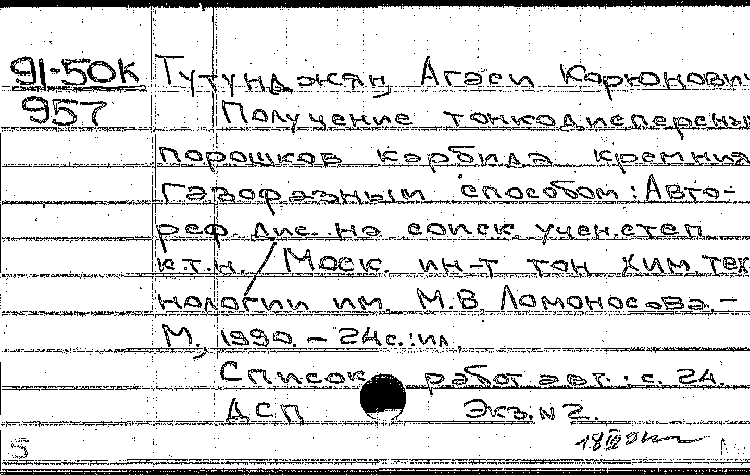 91-50к Тутунджян, Агаси Карюнович
957 Получение тонкодисперсных
порошков карбида кремния
газофазным способом: Авто-
реф. дис. на соиск. учен. степ.
к.т.н. / Моск. ин-т тон. хим. тех-
нологии им. М.В. Ломоносова. –
М., 1990. – 24с.: ил.
Список работ авт.: с. 24.
ДСП Экз. N 2.
5